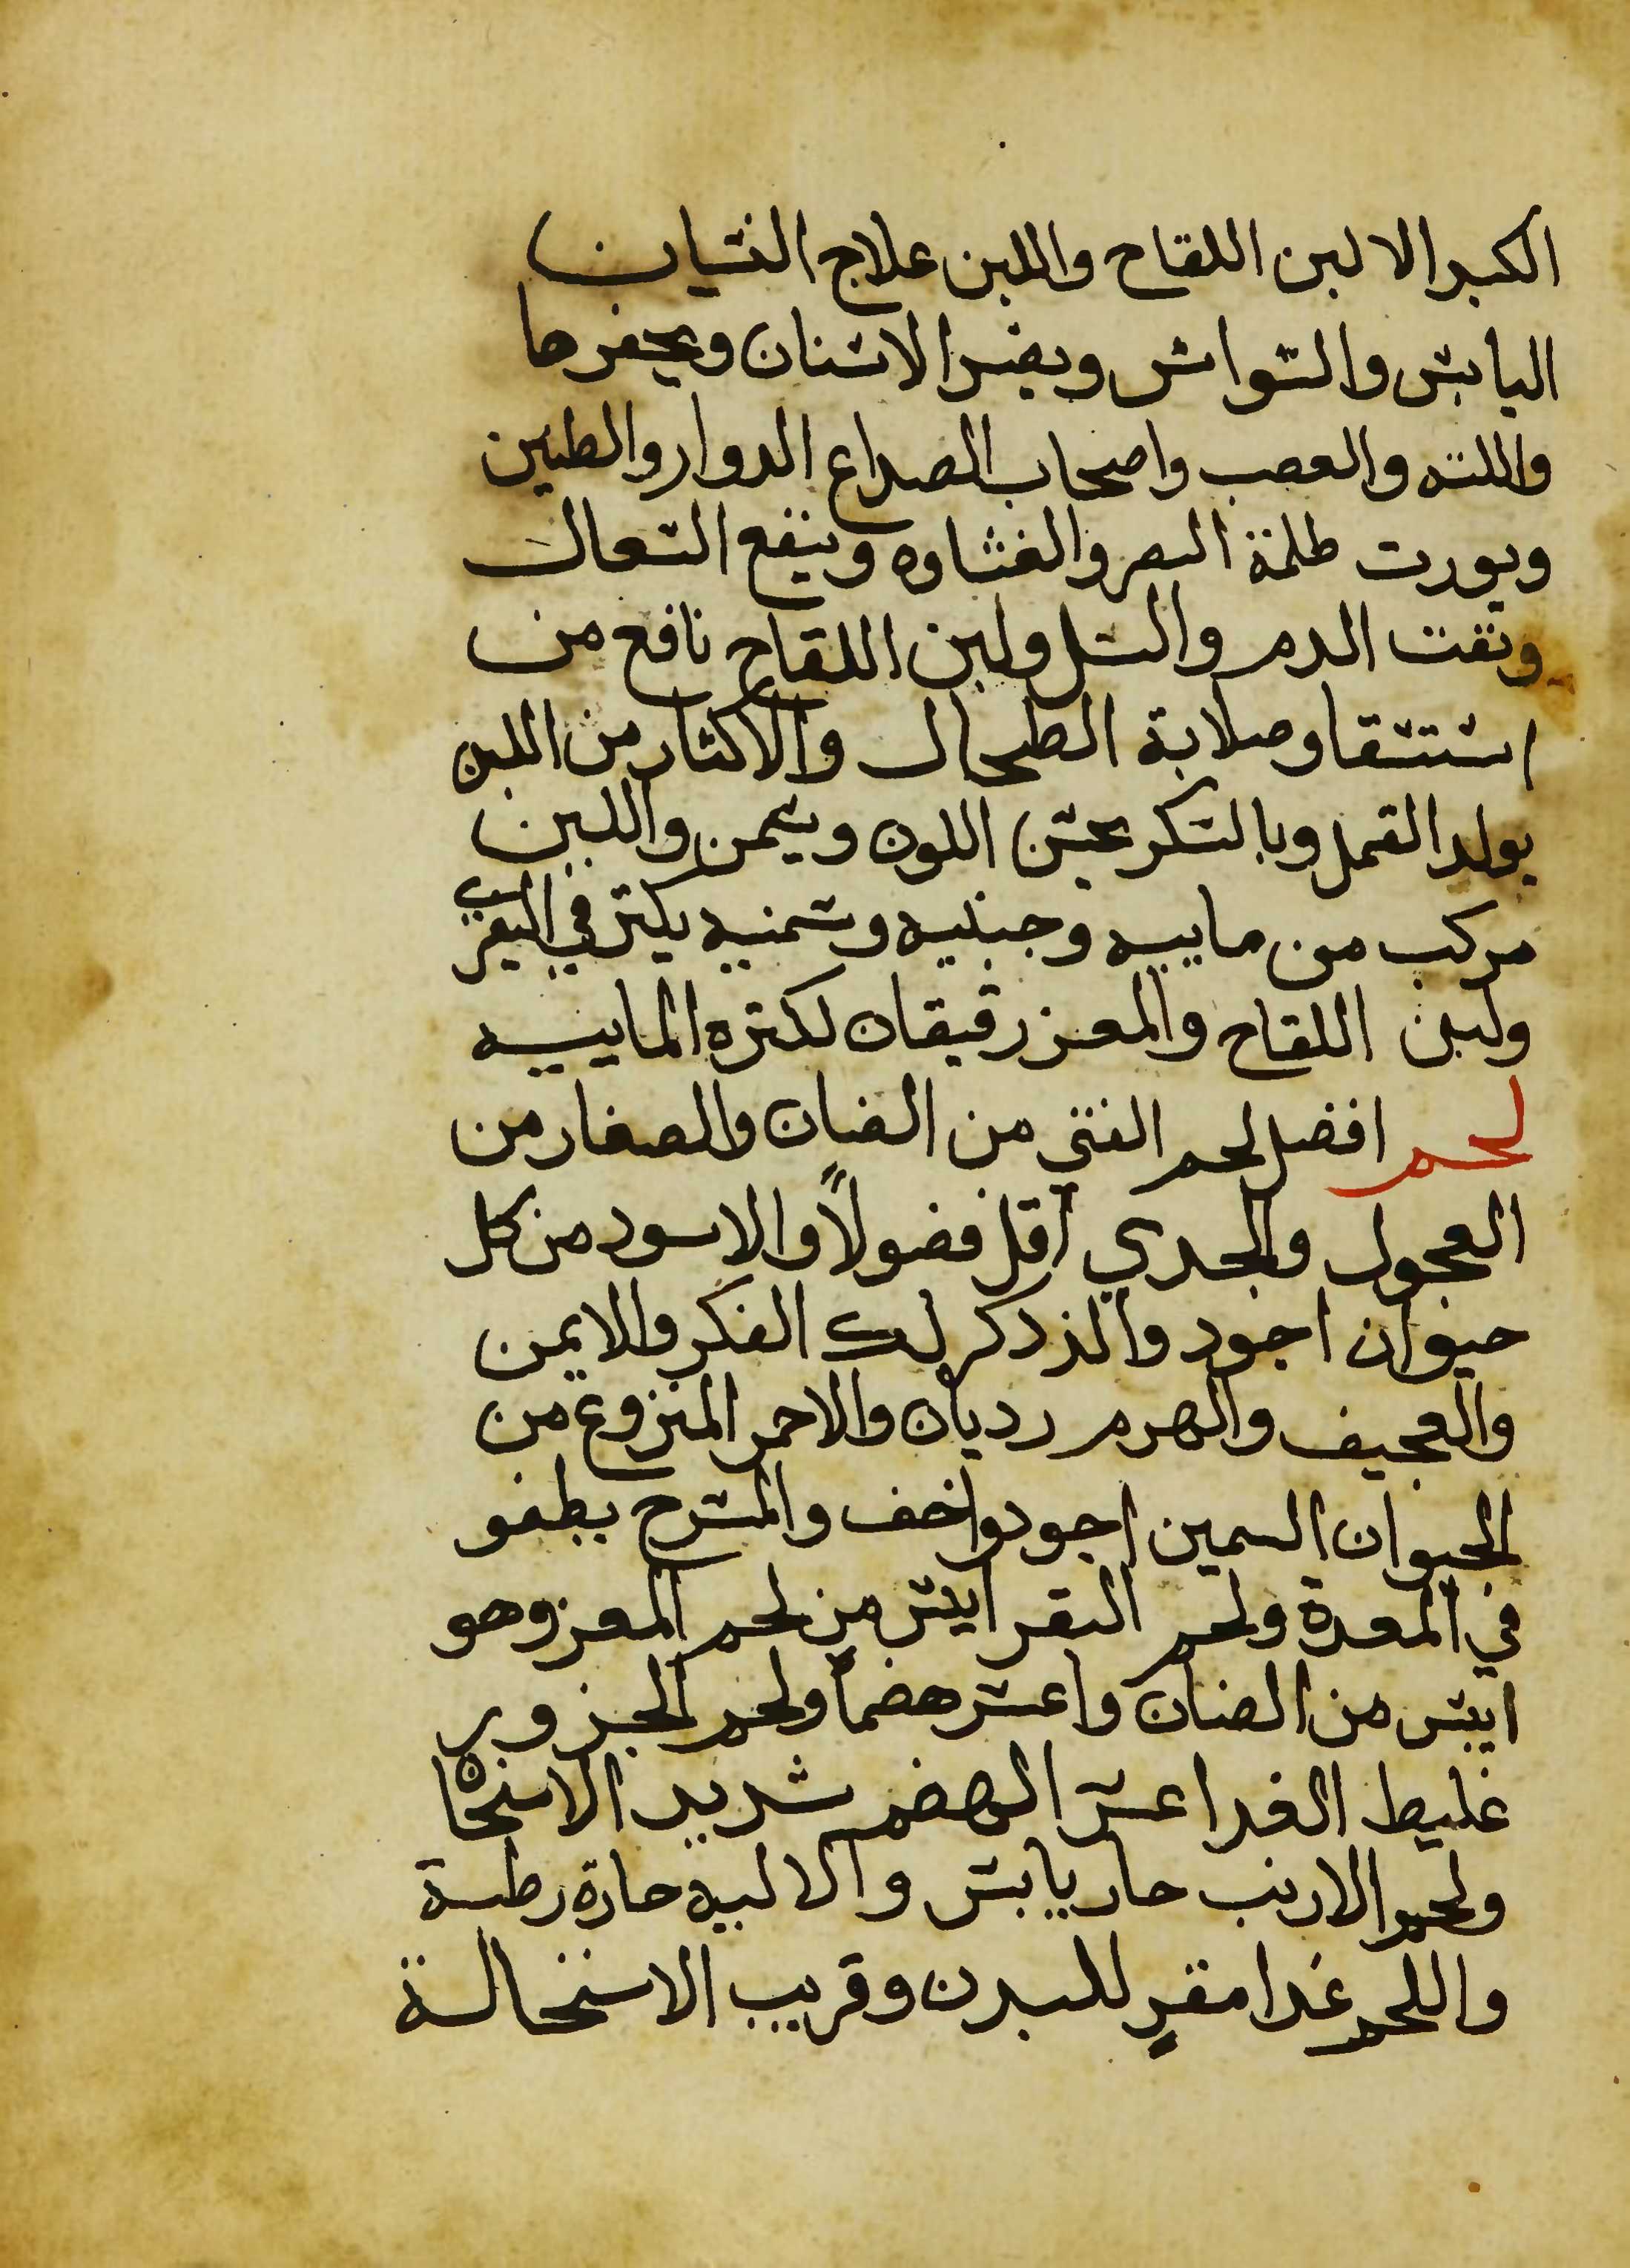 الكبر الا لبن اللقاح واللبن علاج النسيان
اليابس والوسواس ويضر الاسنان ويحفرها
واللثه والعصب واصحاب الصداع الدوار والطنين
ويورث ظلمة البصر والغشاوه وينفع السعال
ونفث الدم والسل ولبن اللقاح نافع من
استسقا وصلابة الطحال والاكثار من اللبن
يولد القمل وبالسكر يحسن اللون ويسمن واللبن
مركب من ماييه وجبنيه وسمنيه يكثر في البقري
ولبن اللقاح والمعز رقيقان لكثره الماييه
لحم افضل لحم الفتي من الضان والصغار من
العجول والجدي اقل فضولاً والاسود من كل
حيوان اجود والذكر لك الفكر والايمن
والعجيف والهرم رديان والاحمر المنزوع من
الحيوان السمين اجود واخف والمشرح يطفو
في المعدة ولحم البقر ايبس من لحم المعز وهو
ايبس من الضان واعسر هضماً ولحم الجزور
غليظ الغدا عسر الهضم شديد الاسخان
ولحم الارنب حار يابس والاليه حارة رطبة
واللحم غدا مقوٍ للبدن وقريب الاستحالة